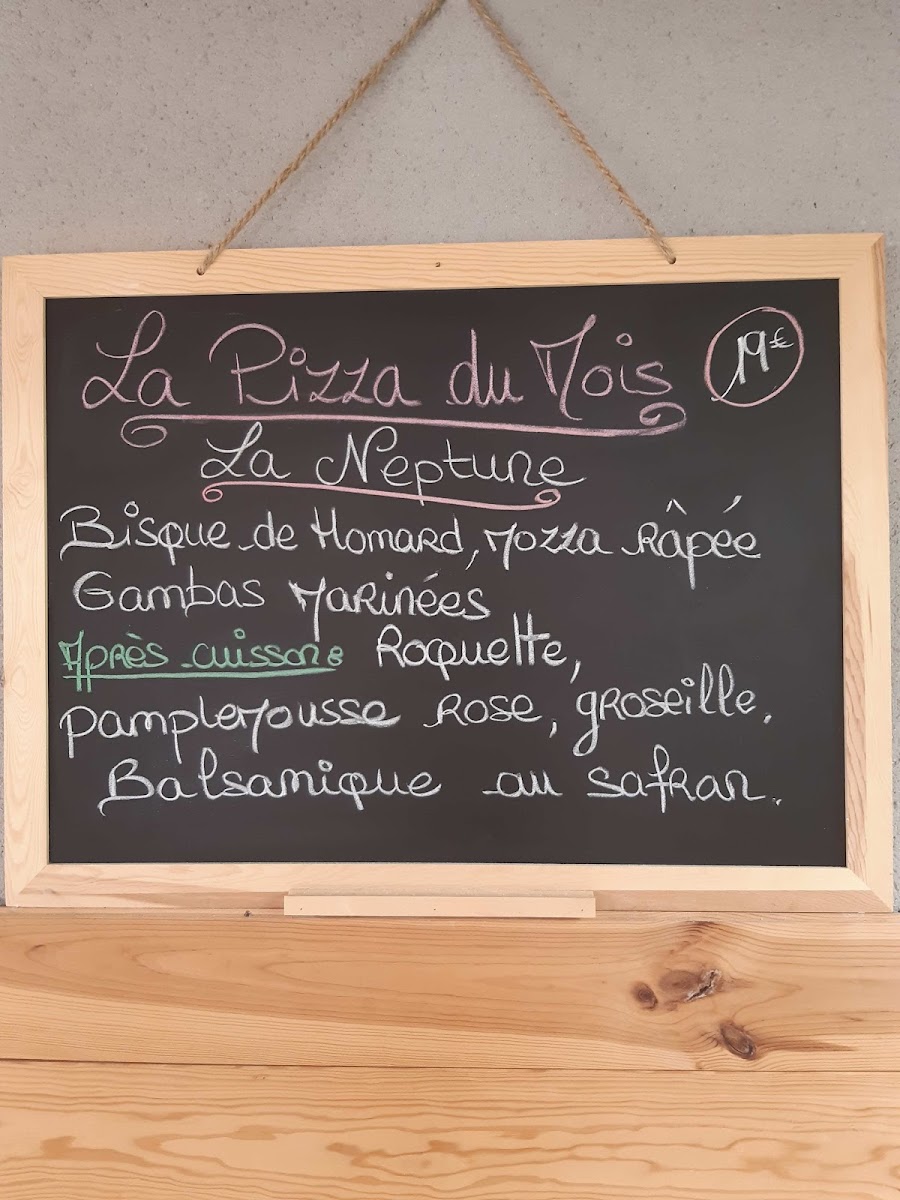 La Pizza du Mois 19€
La Neptune
Bisque de Homard, Mozza Râpée
Gambas Marinées
Après cuisson: Roquette,
Pamplemousse Rose, groseille,
Balsamique au safran.